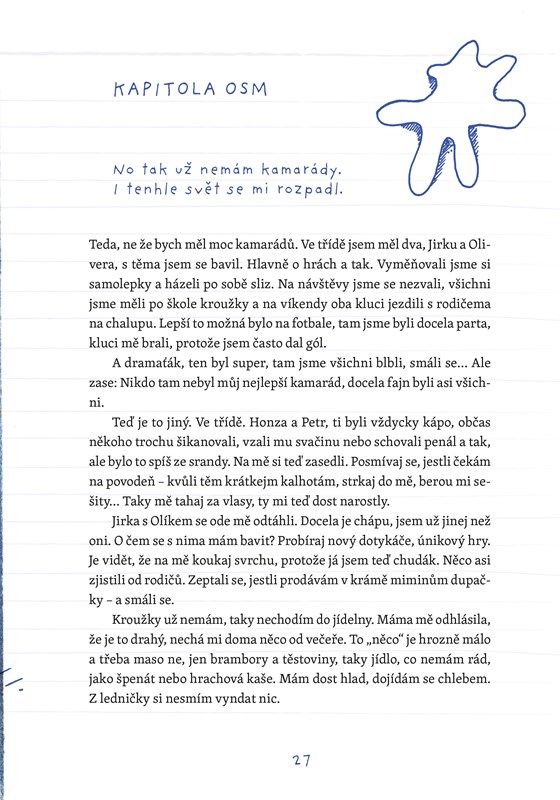 KAPITOLA OSM
No tak už nemám kamarády.
I tenhle svět se mi rozpadl.
Teda, ne že bych měl moc kamarádů. Ve třídě jsem měl dva, Jirku a Oli-
vera, s těma jsem se bavil. Hlavně o hrách a tak. Vyměňovali jsme si
samolepky a házeli po sobě sliz. Na návštěvy jsme se nezvali, všichni
jsme měli po škole kroužky a na víkendy oba kluci jezdili s rodičema
na chalupu. Lepší to možná bylo na fotbale, tam jsme byli docela parta,
kluci mě brali, protože jsem často dal gól.
A dramaťák, ten byl super, tam jsme všichni blbli, smáli se... Ale
zase: Nikdo tam nebyl můj nejlepší kamarád, docela fajn byli asi všich-
ni.
Teď je to jiný. Ve třídě. Honza a Petr, ti byli vždycky kápo, občas
někoho trochu šikanovali, vzali mu svačinu nebo schovali penál a tak,
ale bylo to spíš ze srandy. Na mě si teď zasedli. Posmívaj se, jestli čekám
na povodeň – kvůli těm krátkejm kalhotám, strkaj do mě, berou mi se-
šity... Taky mě tahaj za vlasy, ty mi teď dost narostly.
Jirka s Olíkem se ode mě odtáhli. Docela je chápu, jsem už jinej než
oni. O čem se s nima mám bavit? Probíraj nový dotykáče, únikový hry.
Je vidět, že na mě koukaj svrchu, protože já jsem teď chudák. Něco asi
zjistili od rodičů. Zeptali se, jestli prodávám v krámě miminům dupač-
ky – a smáli se.
Kroužky už nemám, taky nechodím do jídelny. Máma mě odhlásila,
že je to drahý, nechá mi doma něco od večeře. To „něco“ je hrozně málo
a třeba maso ne, jen brambory a těstoviny, taky jídlo, co nemám rád,
jako špenát nebo hrachová kaše. Mám dost hlad, dojídám se chlebem.
Z ledničky si nesmím vyndat nic.
27